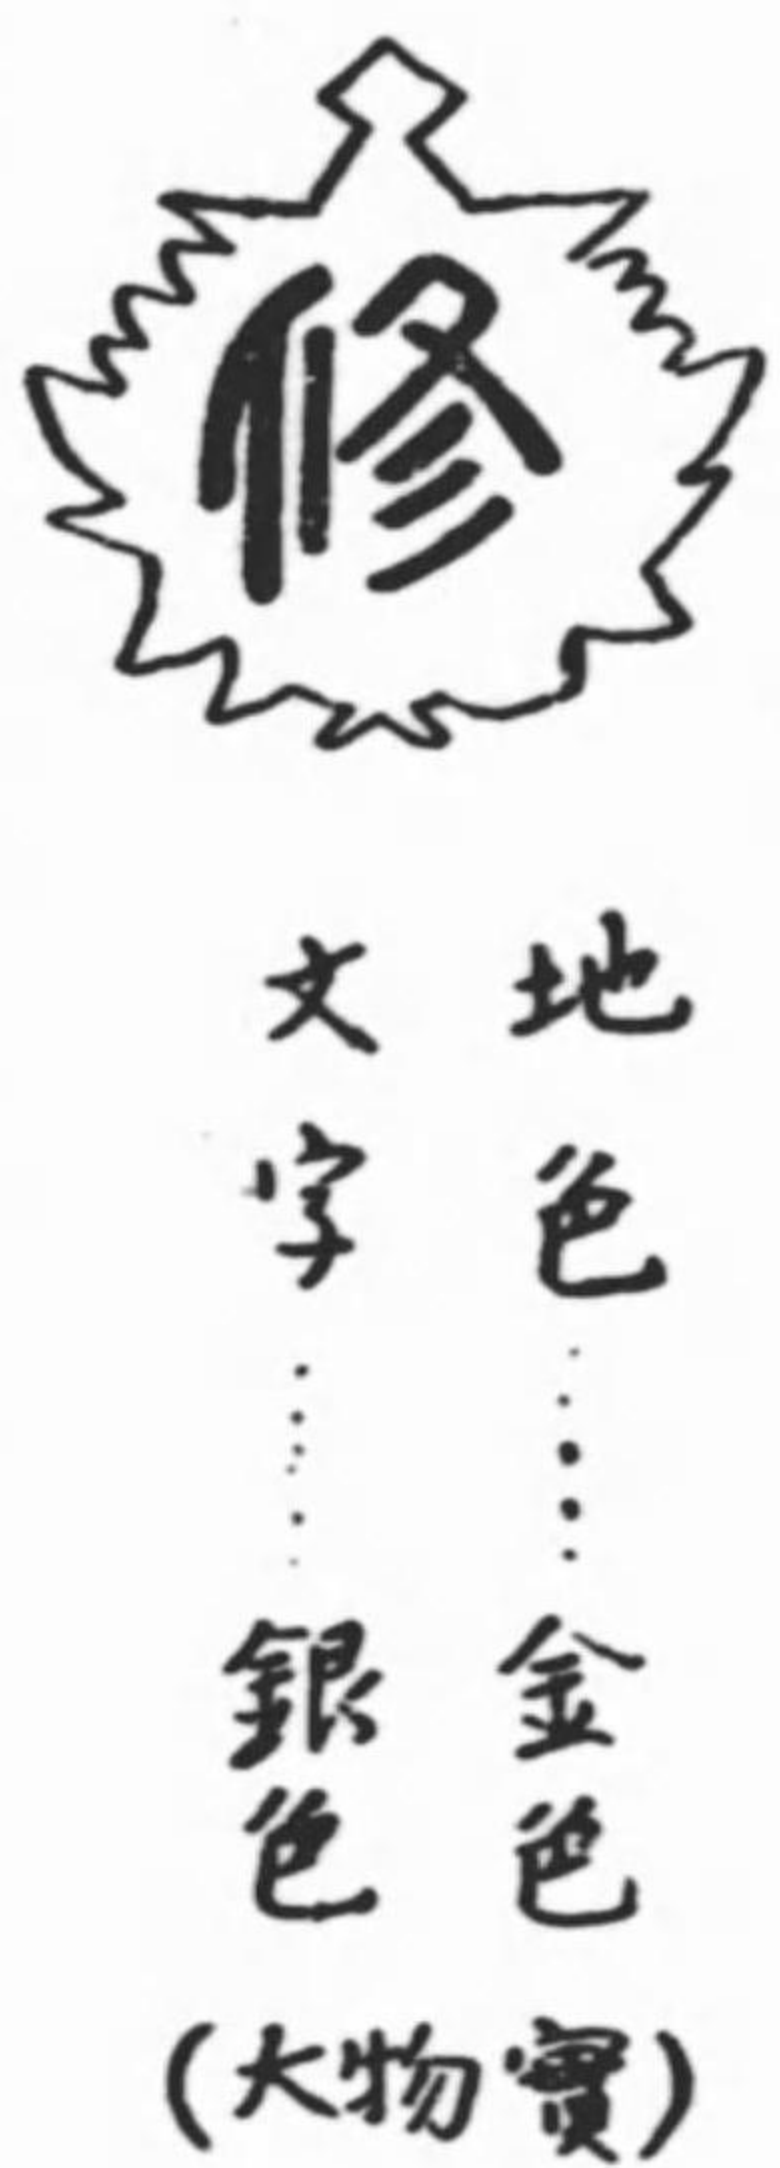 修
地色……金色
文字……銀色
(實物大)